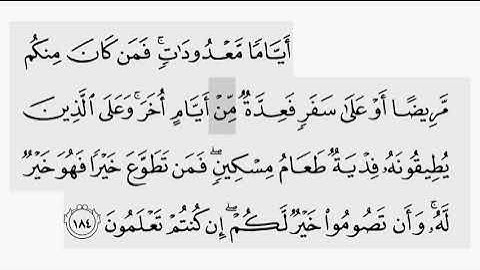 أَيَّامًا مَّعْدُودَاتٍ ۚ فَمَن كَانَ مِنكُم
مَّرِيضًا أَوْ عَلَىٰ سَفَرٍ فَعِدَّةٌ مِّنْ أَيَّامٍ أُخَرَ ۚ وَعَلَى الَّذِينَ
يُطِيقُونَهُ فِدْيَةٌ طَعَامُ مِسْكِينٍ ۖ فَمَن تَطَوَّعَ خَيْرًا فَهُوَ خَيْرٌ
لَّهُ ۚ وَأَن تَصُومُوا خَيْرٌ لَّكُمْ ۖ إِن كُنتُمْ تَعْلَمُونَ ١٨٤